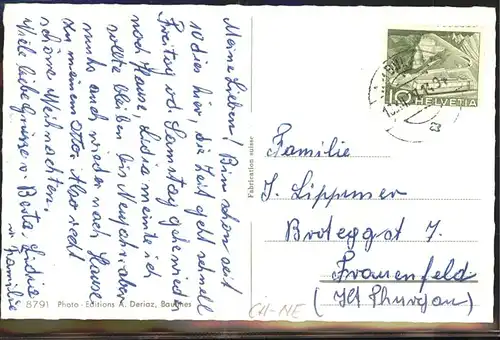 Meine Lieben! Bin schon seit
10 d's hier, die Zeit geht schnell
Freitag od. Samstag gehe wieder
nach Hause, Lidia meinte ich
sollte bleiben bis Neujahr, aber
muss auch wieder nach Hause
zu meinem Otto. Also recht
schöne Weihnachten.
Viele liebe Grüsse v. Berta. Lidia
u. Familie
8791 Photo-Editions A. Deriaz, Baulmes
Fabrication suisse
10 HELVETIA
Familie
J. Lippmer
Broteggst 7.
Frauenfeld
(Kt Thurgau)
CH-NE